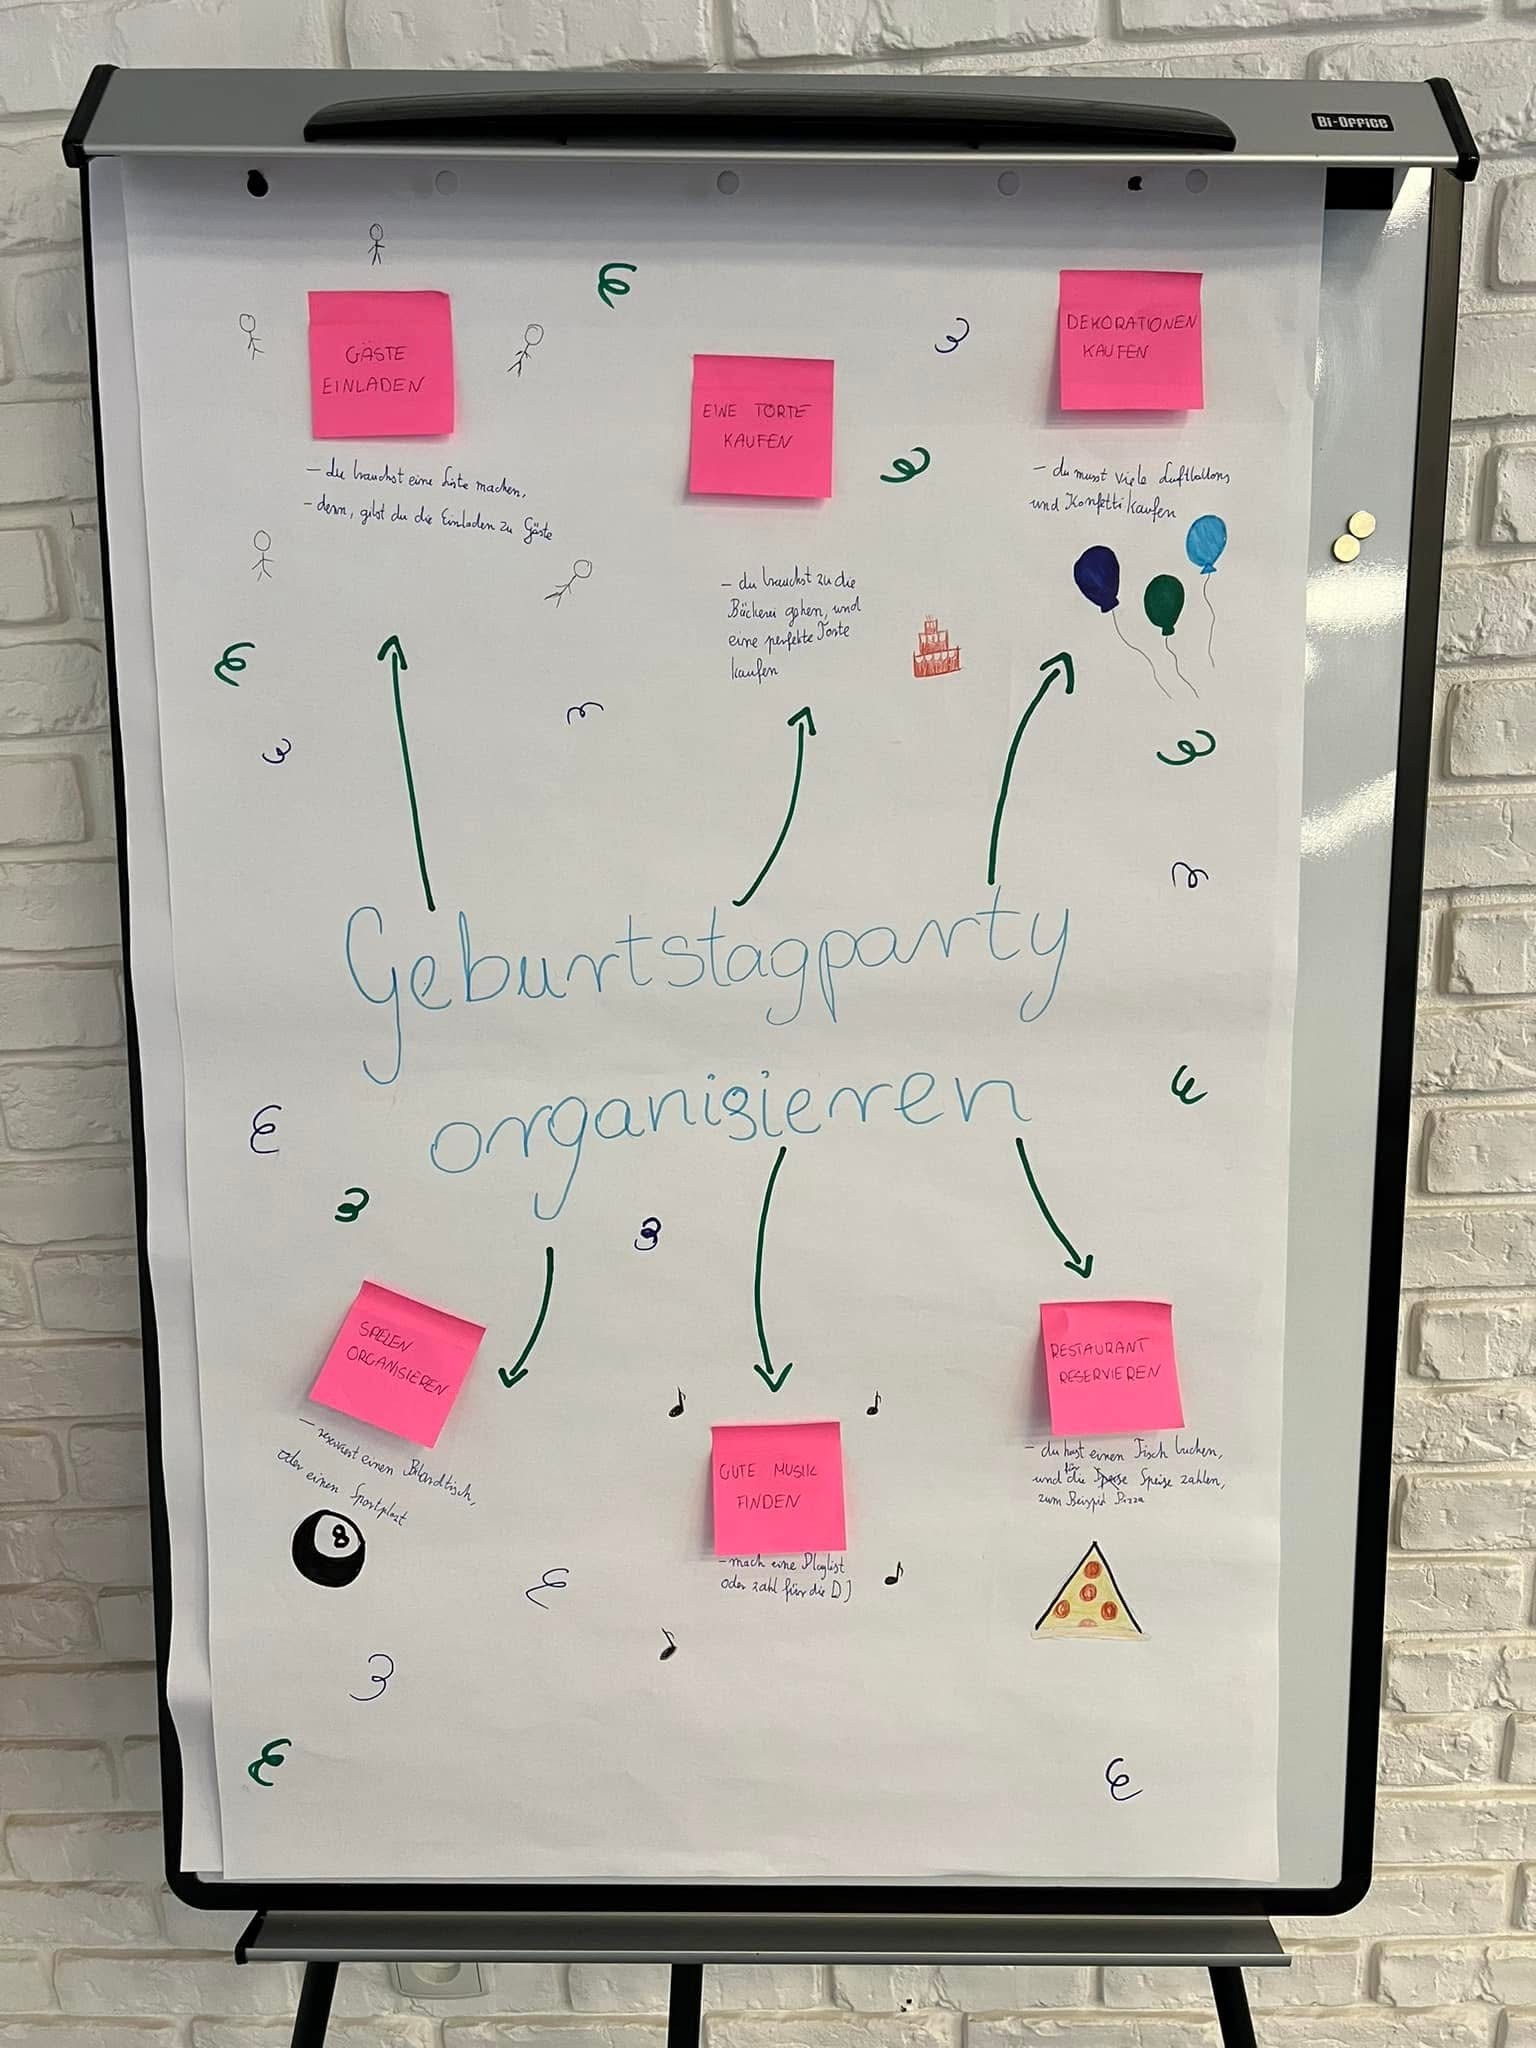 Bi-Office
GÄSTE
EINLADEN
- du brauchst eine Liste machen,
- denn, gibst du die Einladen zu Gäste
EINE TORTE
KAUFEN
- du brauchst zu die
Bäckerei gehen, und
eine perfekte Torte
kaufen
DEKORATIONEN
KAUFEN
- du musst viele Luftballons
und Konfetti kaufen
Geburtstagparty
organisieren
SPIELEN
ORGANISIEREN
- reserviert einen Bilardtisch,
oder einen Sportplazt
8
GUTE MUSIK
FINDEN
- mach eine Playlist
oder zahl für die DJ
RESTAURANT
RESERVIEREN
- du hast einen Tisch buchen,
und für die Speise zahlen,
zum Beispiel Pizza